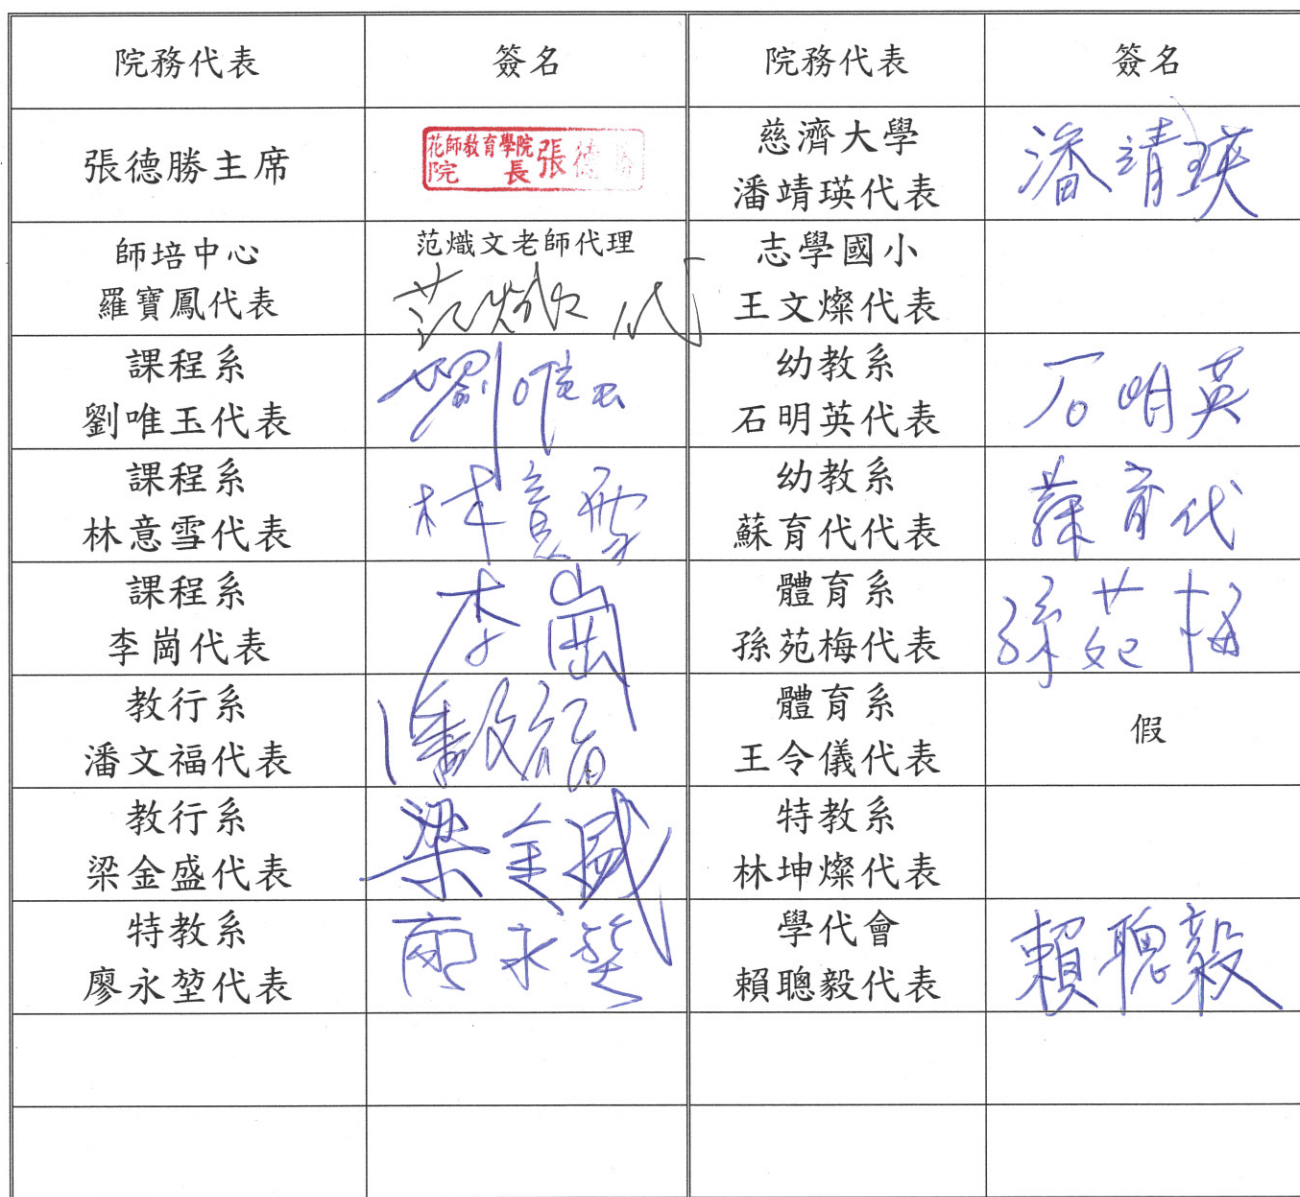 院務代表 簽名 院務代表 簽名
張德勝主席 花師教育學院 院長 張德勝 慈濟大學 潘靖瑛代表 潘靖瑛
師培中心 羅寶鳳代表 范熾文老師代理 范熾文代 志學國小 王文燦代表
課程系 劉唯玉代表 劉唯玉 幼教系 石明英代表 石明英
課程系 林意雪代表 林意雪 幼教系 蘇育代代表 蘇育代
課程系 李崗代表 李崗 體育系 孫苑梅代表 孫苑梅
教行系 潘文福代表 潘文福 體育系 王令儀代表 假
教行系 梁金盛代表 梁金盛 特教系 林坤燦代表
特教系 廖永堃代表 廖永堃 學代會 賴聰毅代表 賴聰毅